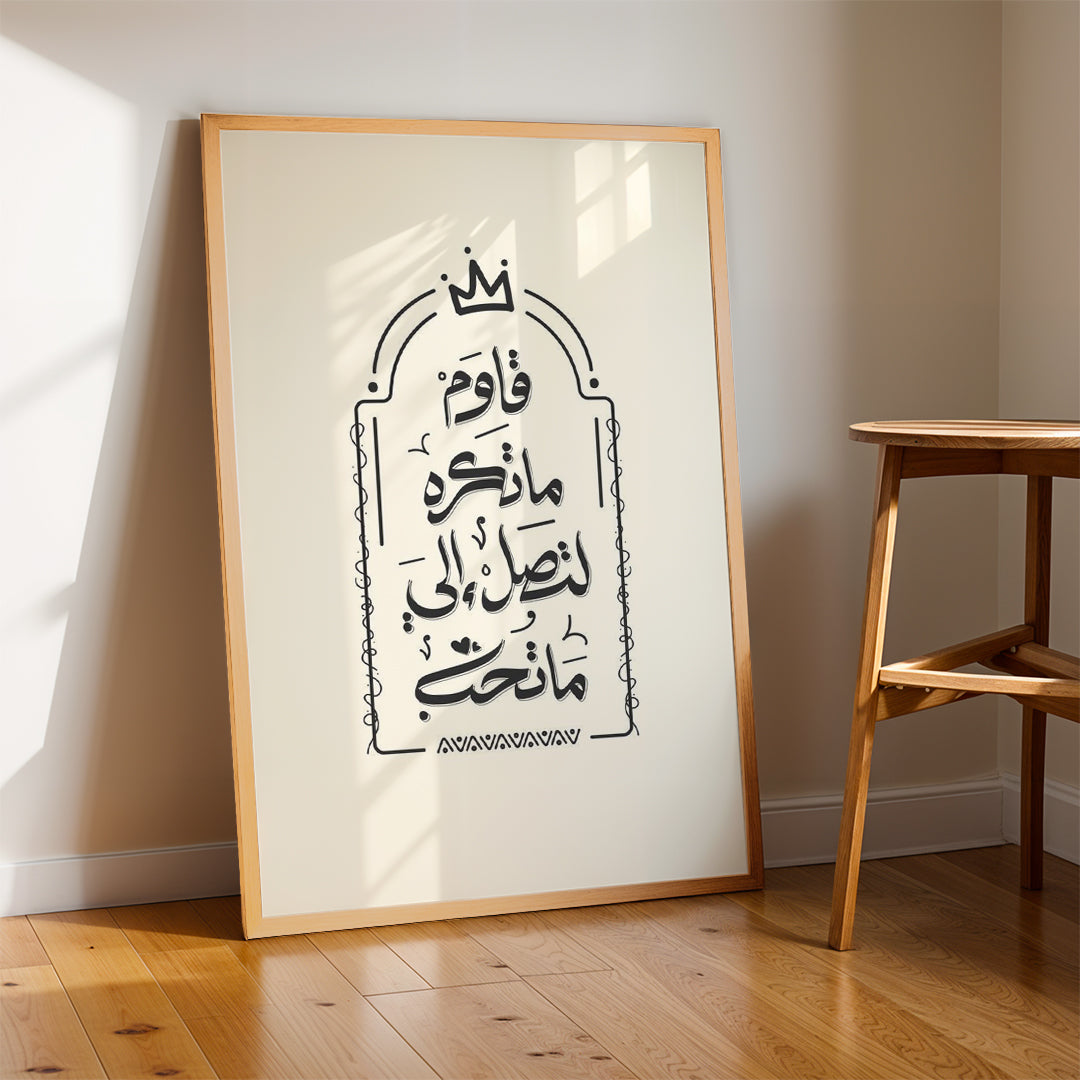 قاوم
ماتكره
لتصل إلي
ماتحب